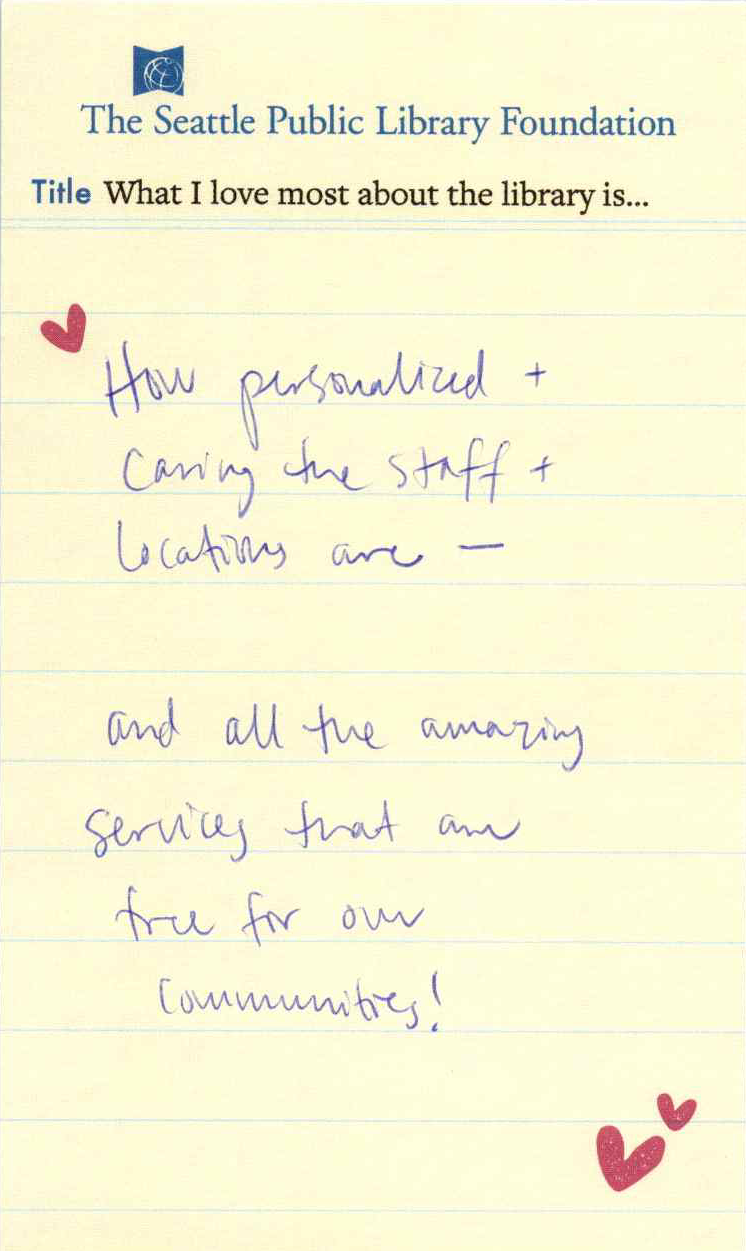 The Seattle Public Library Foundation
Title What I love most about the library is...
How personalized +
caring the staff +
locations are —
and all the amazing
services that are
free for our
communities!